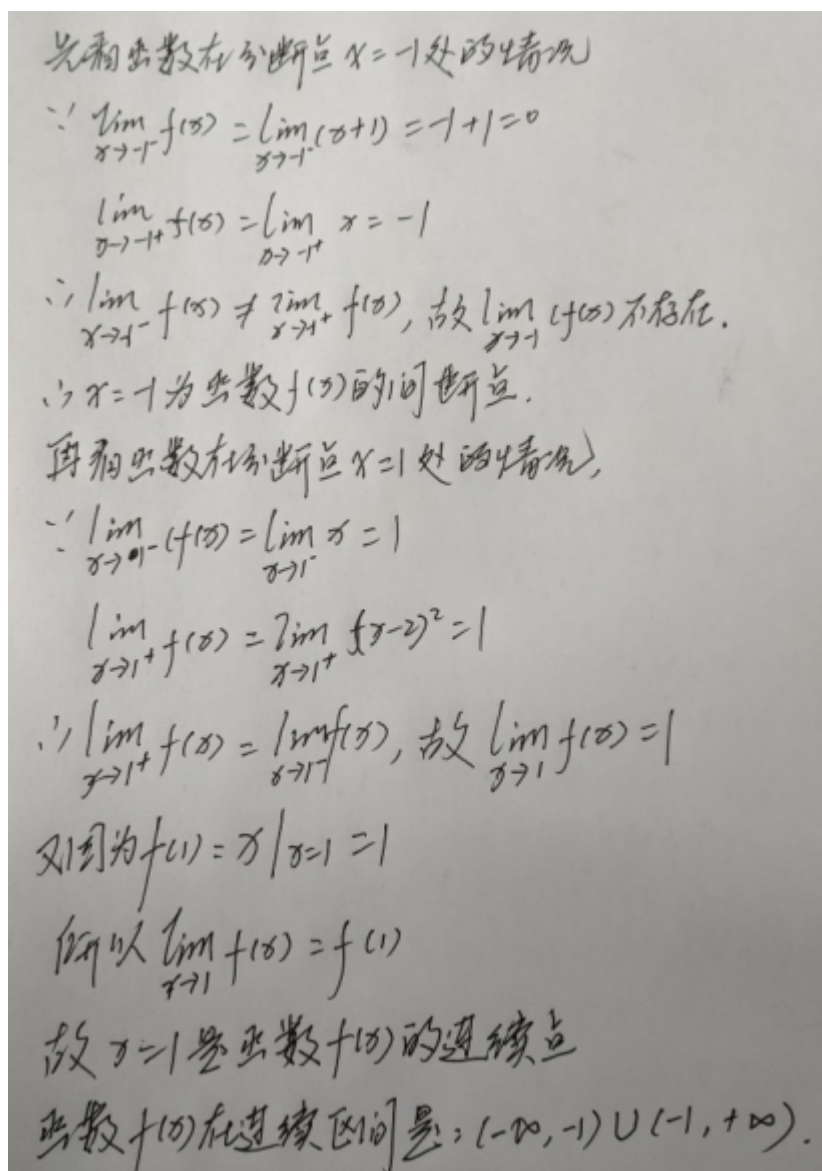 先看函数在分断点 x=-1处的情况
∵ lim_{x→-1⁻} f(x) = lim_{x→-1⁻} (x+1) = -1+1=0
lim_{x→-1⁺} f(x) = lim_{x→-1⁺} x = -1
∴ lim_{x→-1⁻} f(x) ≠ lim_{x→-1⁺} f(x), 故 lim_{x→-1} f(x) 不存在.
∴ x=-1 为函数 f(x) 的间断点.
再看函数在分断点 x=1 处的情况,
∵ lim_{x→1⁻} f(x) = lim_{x→1⁻} x = 1
lim_{x→1⁺} f(x) = lim_{x→1⁺} (x-2)² = 1
∴ lim_{x→1⁺} f(x) = lim_{x→1⁻} f(x), 故 lim_{x→1} f(x) = 1
又因为 f(1) = x|x=1 = 1
所以 lim_{x→1} f(x) = f(1)
故 x=1 是函数 f(x) 的连续点
函数 f(x) 在连续区间是: (-∞, -1) ∪ (-1, +∞).